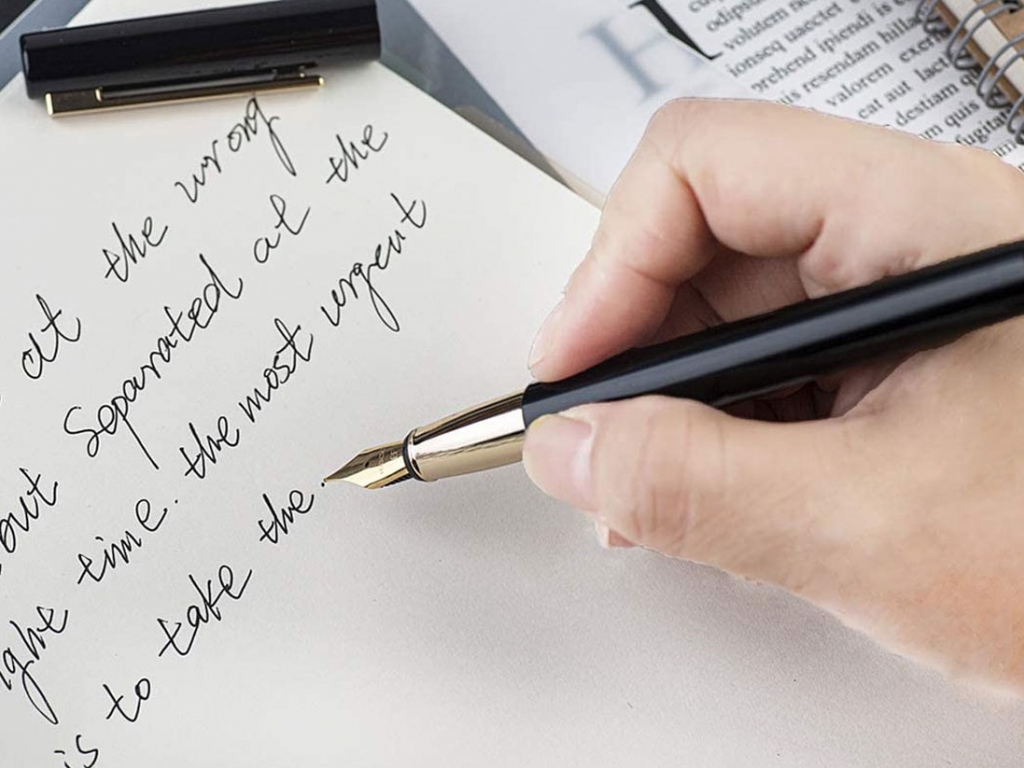 at the wrong
but Separated at the
ight time. the most urgent
is to take the
H
volutem
ionseq uaectet
rehend ipiendi is
resendam
valorem
eat aut
destiam
quis